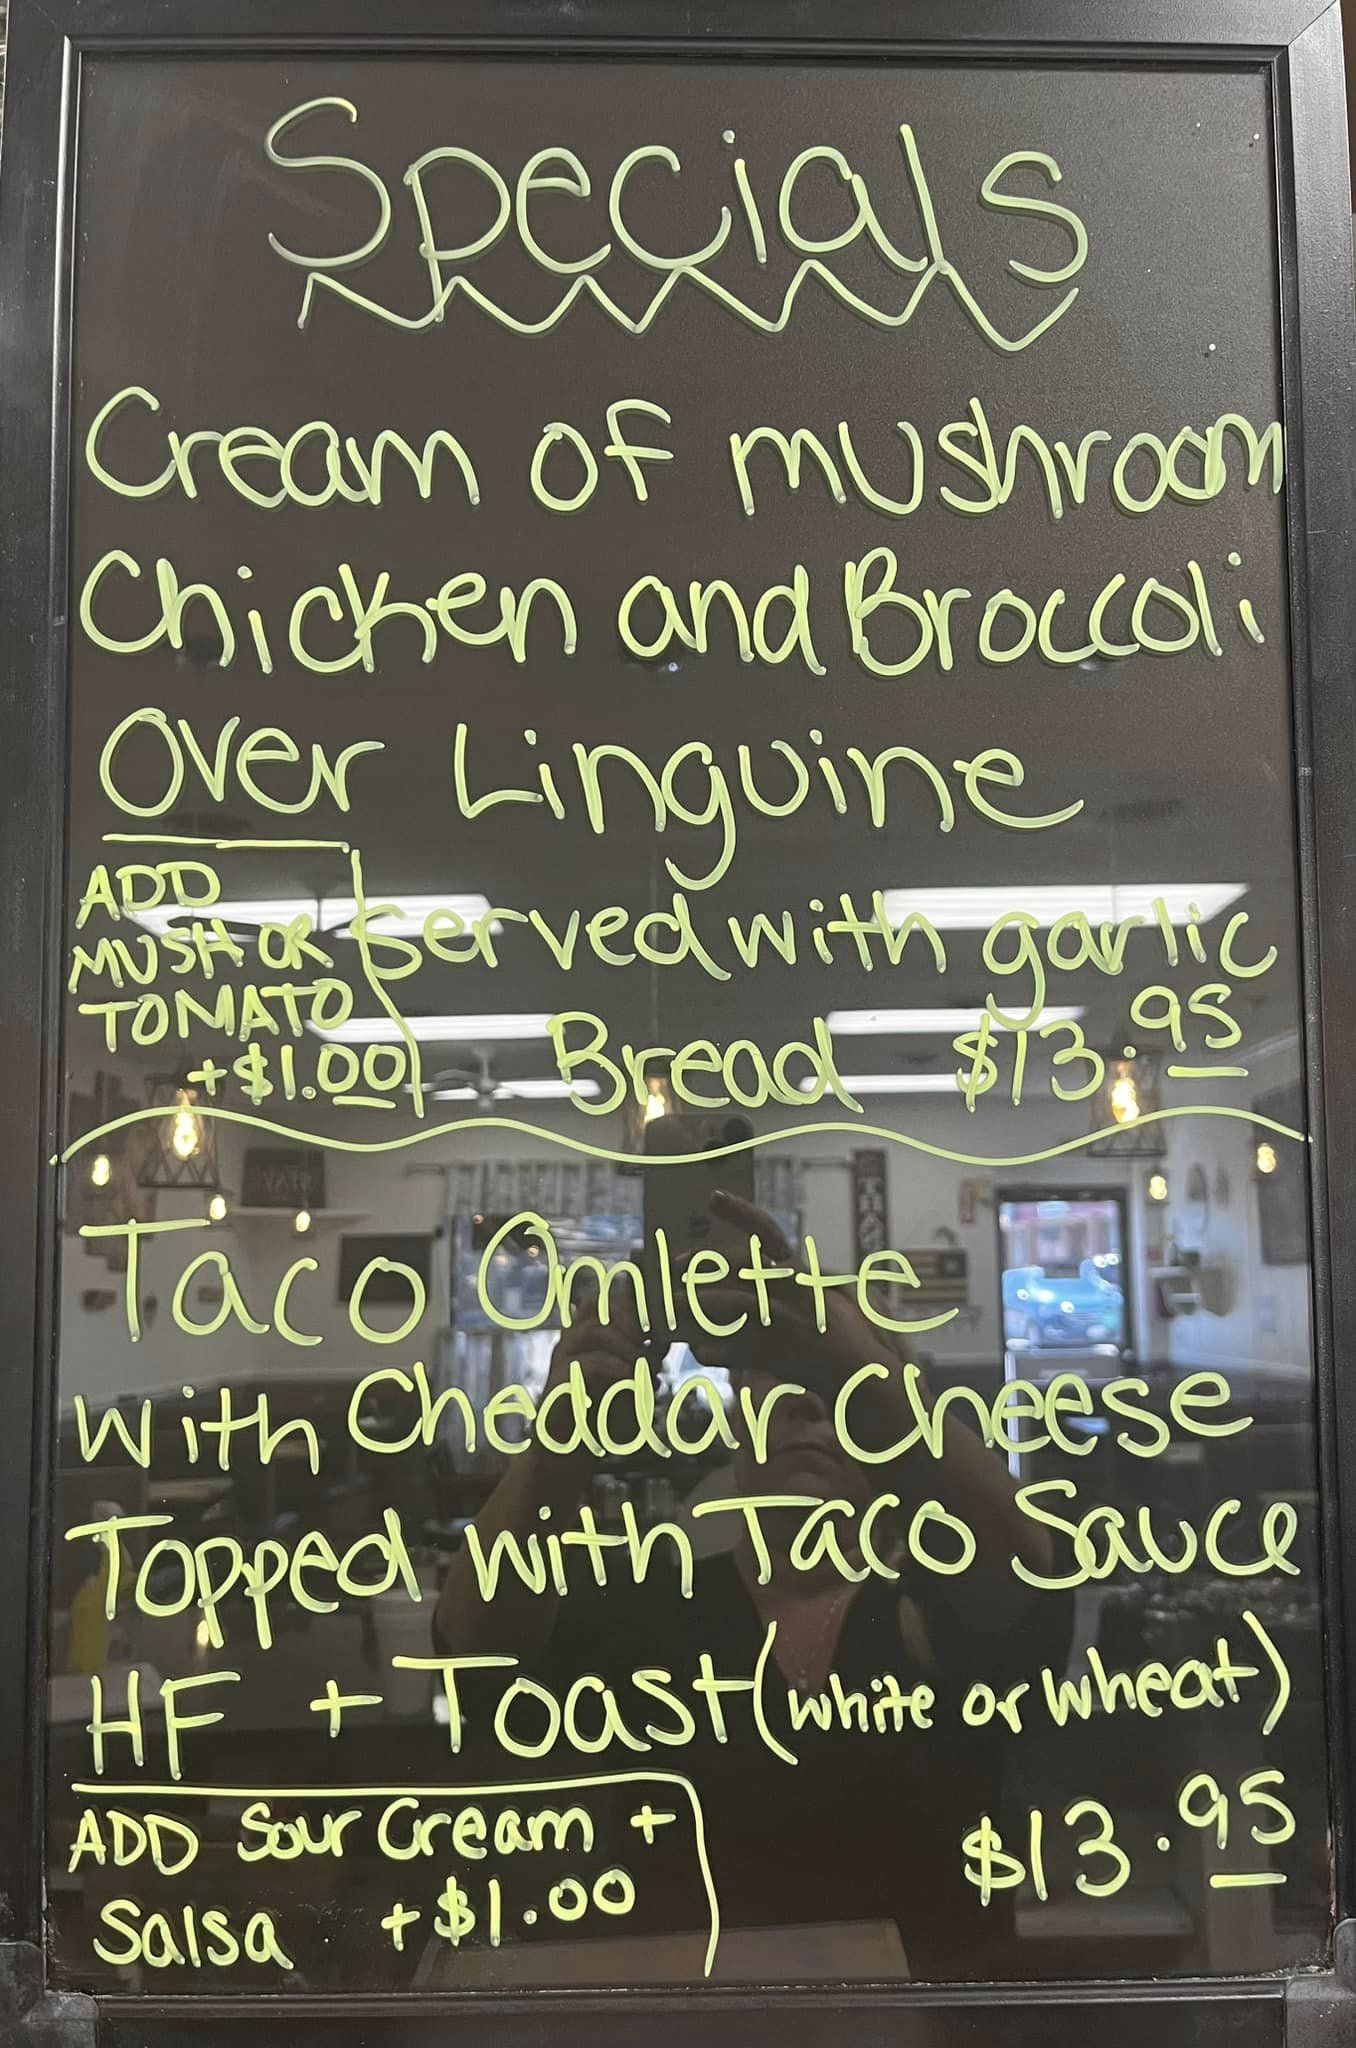 Specials
Cream of mushroom
Chicken and Broccoli
Over Linguine
ADD
MUSH OR
TOMATO
+$1.00
served with garlic
Bread $13.95
Taco Omlette
with Cheddar Cheese
Topped with Taco Sauce
HF + Toast (white or wheat)
ADD Sour Cream +
Salsa +$1.00
$13.95